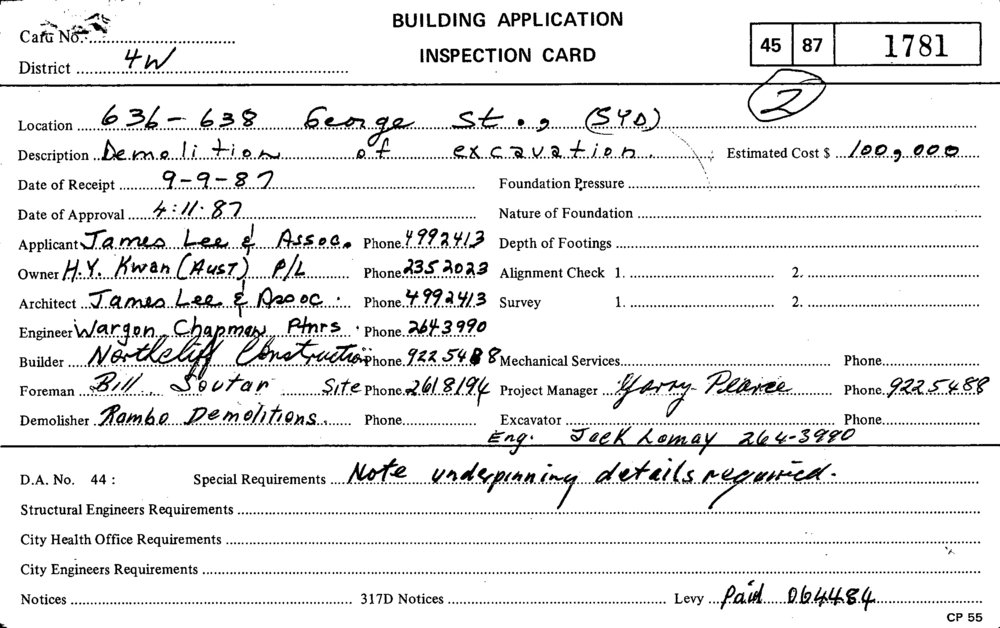 BUILDING APPLICATION
INSPECTION CARD
Card No.
District 4W
45 87 1781
2
Location 636-638 George St., (SYD)
Description Demolition of excavation. Estimated Cost $ 100,000
Date of Receipt 9-9-87 Foundation Pressure
Date of Approval 4:11.87 Nature of Foundation
Applicant James Lee & Assoc. Phone 4992413 Depth of Footings
Owner H.Y. Kwan (Aust) P/L Phone 2352023 Alignment Check 1. 2.
Architect James Lee & Assoc. Phone 4992413 Survey 1. 2.
Engineer Wargon Chapman Ptnrs. Phone 2643990
Builder Northcliff Construction Phone 9225488 Mechanical Services Phone
Foreman Bill Soutar Site Phone 2618194 Project Manager Garry Pearce Phone 9225488
Demolisher Rambo Demolitions. Phone Excavator Phone
Eng. Jack Lomay 264-3990
D.A. No. 44: Special Requirements Note underpinning details required.
Structural Engineers Requirements
City Health Office Requirements
City Engineers Requirements
Notices 317D Notices Levy Paid 064484
CP 55